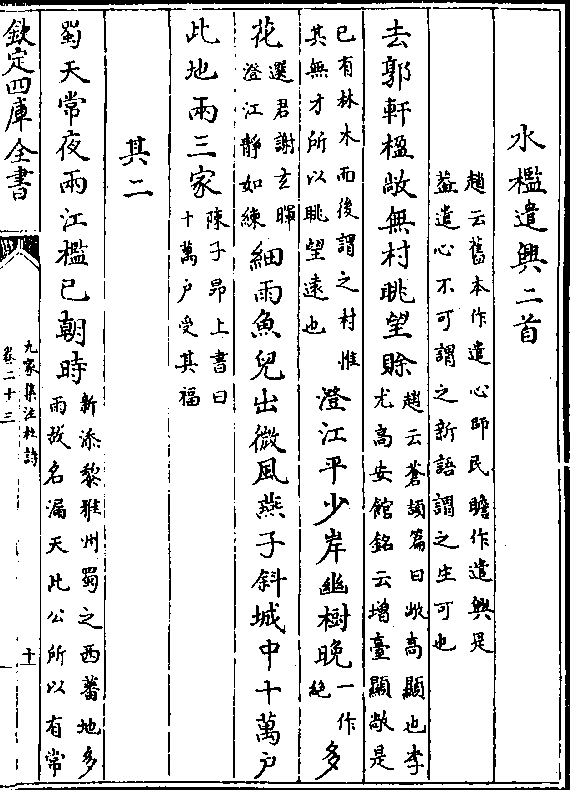 水檻遣興二首
趙云舊本作遣心師民瞻作遣興是
益遣心不可謂之新語謂之生可也
去郭軒楹敞無村眺望賒
趙云蒼頡篇曰敞高顯也李
尤高安館銘云增臺顯敞是
已有林木而後謂之村惟
其無才所以眺望遠也
澄江平少岸幽樹晚
一作
絶
多
花
選君謝玄暉
澄江静如練
細雨魚兒出微風燕子斜城中十萬户
此地兩三家
陳子昂上書曰
十萬户受其福
其二
蜀天常夜雨江檻已朝時
新添黎雅州蜀之西蕃地多
雨故名漏天此公所以有常
欽定四庫全書
九家集注杜詩
卷二十三
十